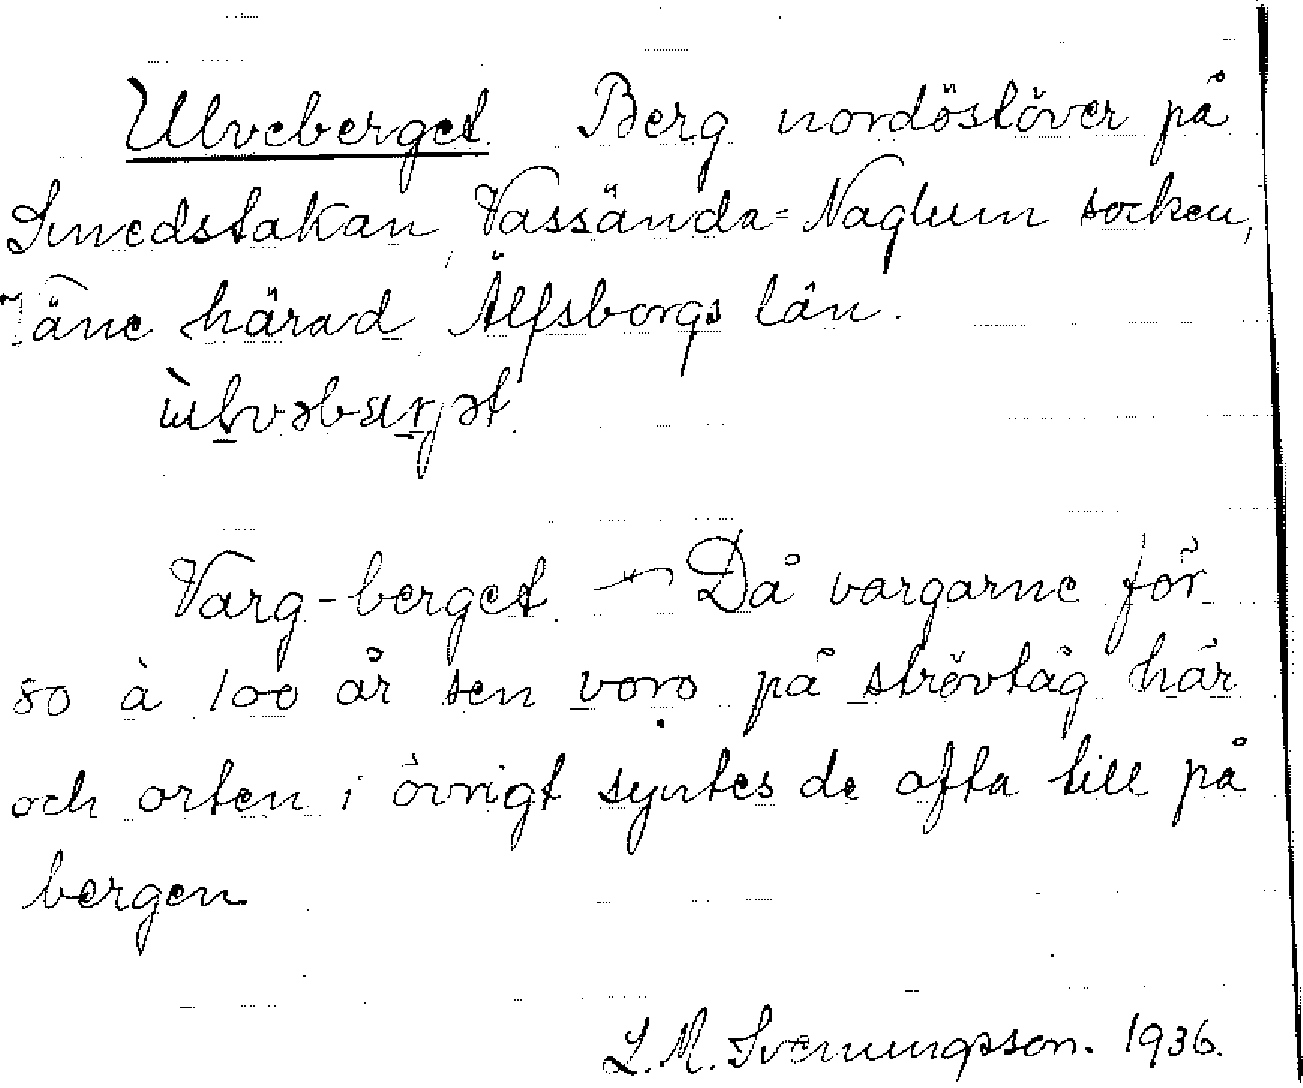 Ulveberget. Berg nordöstöver på
Smedstakan, Vassända-Naglum socken,
Väne härad Älfsborgs län.
Varg-berget. — Då vargarne för
80 à 100 år sen voro på strövtåg här
och orten i övrigt syntes de ofta till på
bergen
L. M. Svenungsson. 1936.